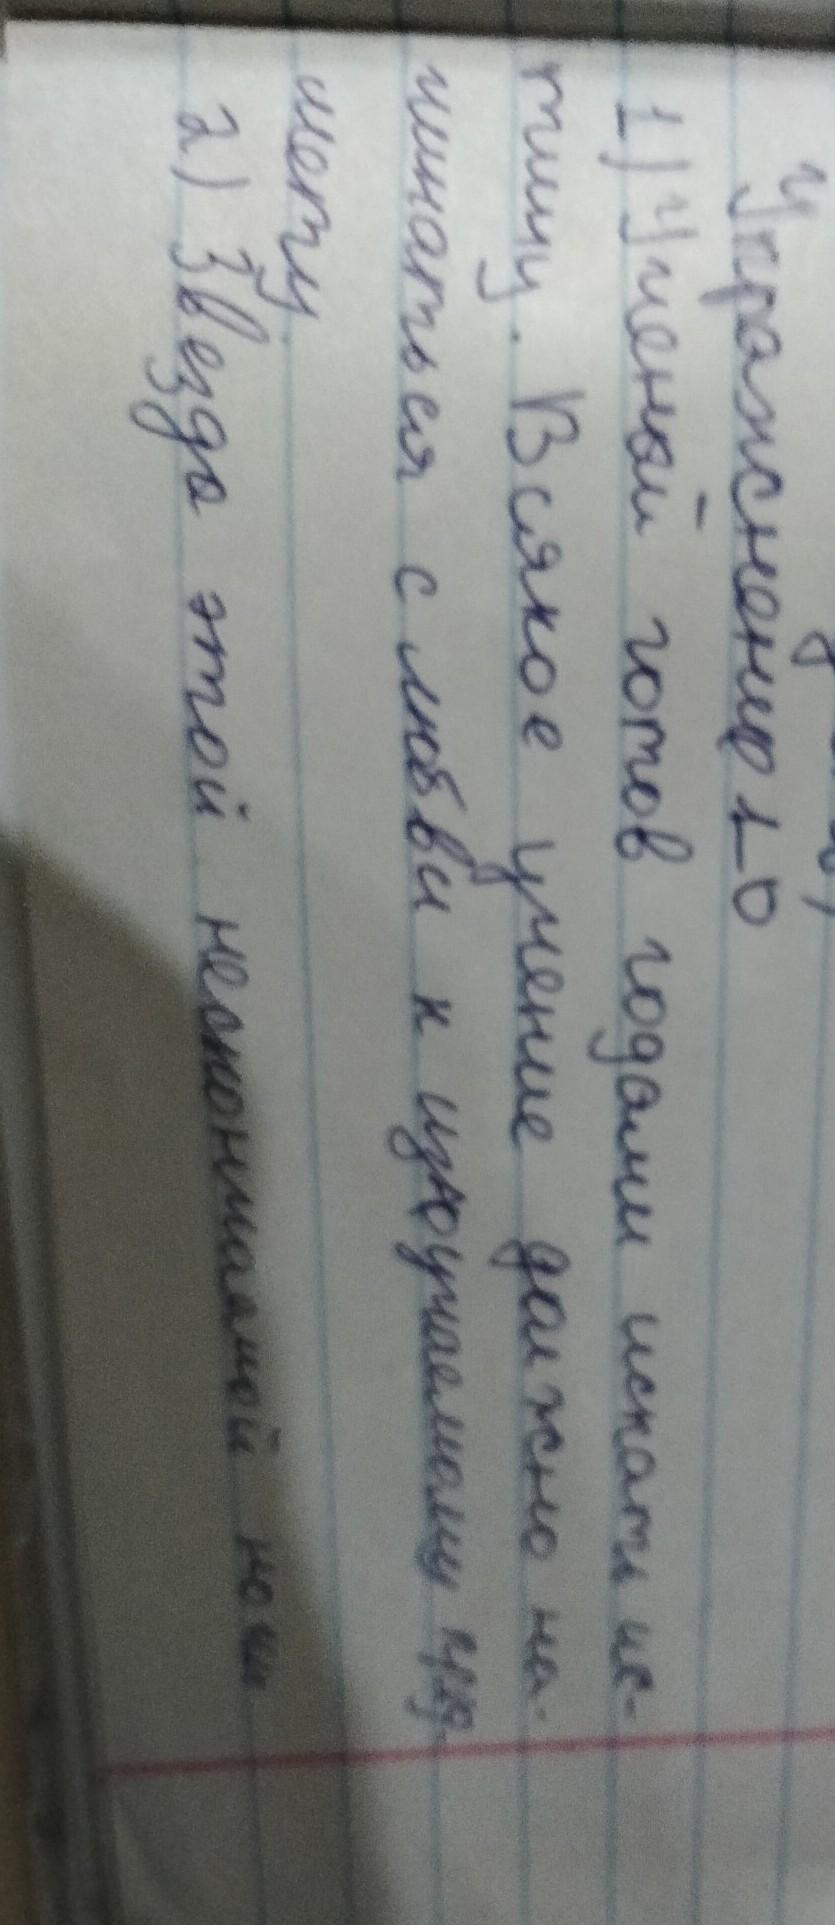 Упражнение 10
1) Ученый готов годами искать ис-
тину. Всякое учение должно на-
чинаться с любви к изучаемому пред-
мету.
2) Звезда этой нескончаемой ночи